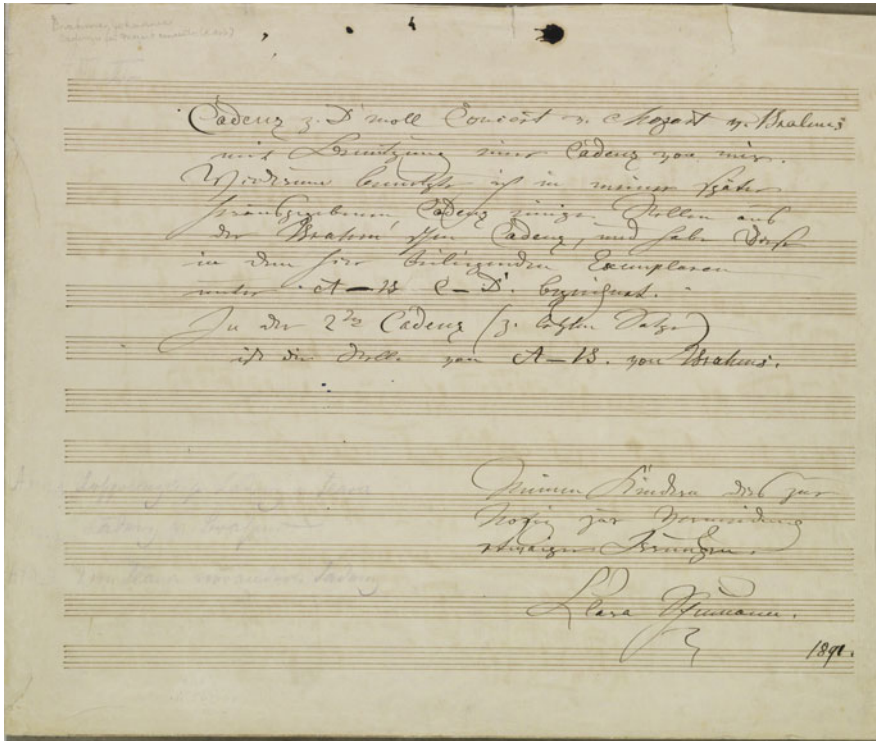 Brahms, Johannes
Cadenz z. D moll Concert v. Mozart v. Brahms
mit Benutzung einer Cadenz von mir.
Wiederum benutzte ich in meiner später
herausgegebenen Cadenz einige Stellen aus
der Brahms'schen Cadenz, und habe diese
in dem hier beiliegenden Exemplaren
unter A–B C–D. bezeichnet.
In der 2ten Cadenz (z. letzten Satze)
ist die Stelle von A–B. von Brahms.
Meinen Kindern dies zur
Notiz zur Vermeidung
etwaiger Irrungen.
Clara Schumann.
1891.